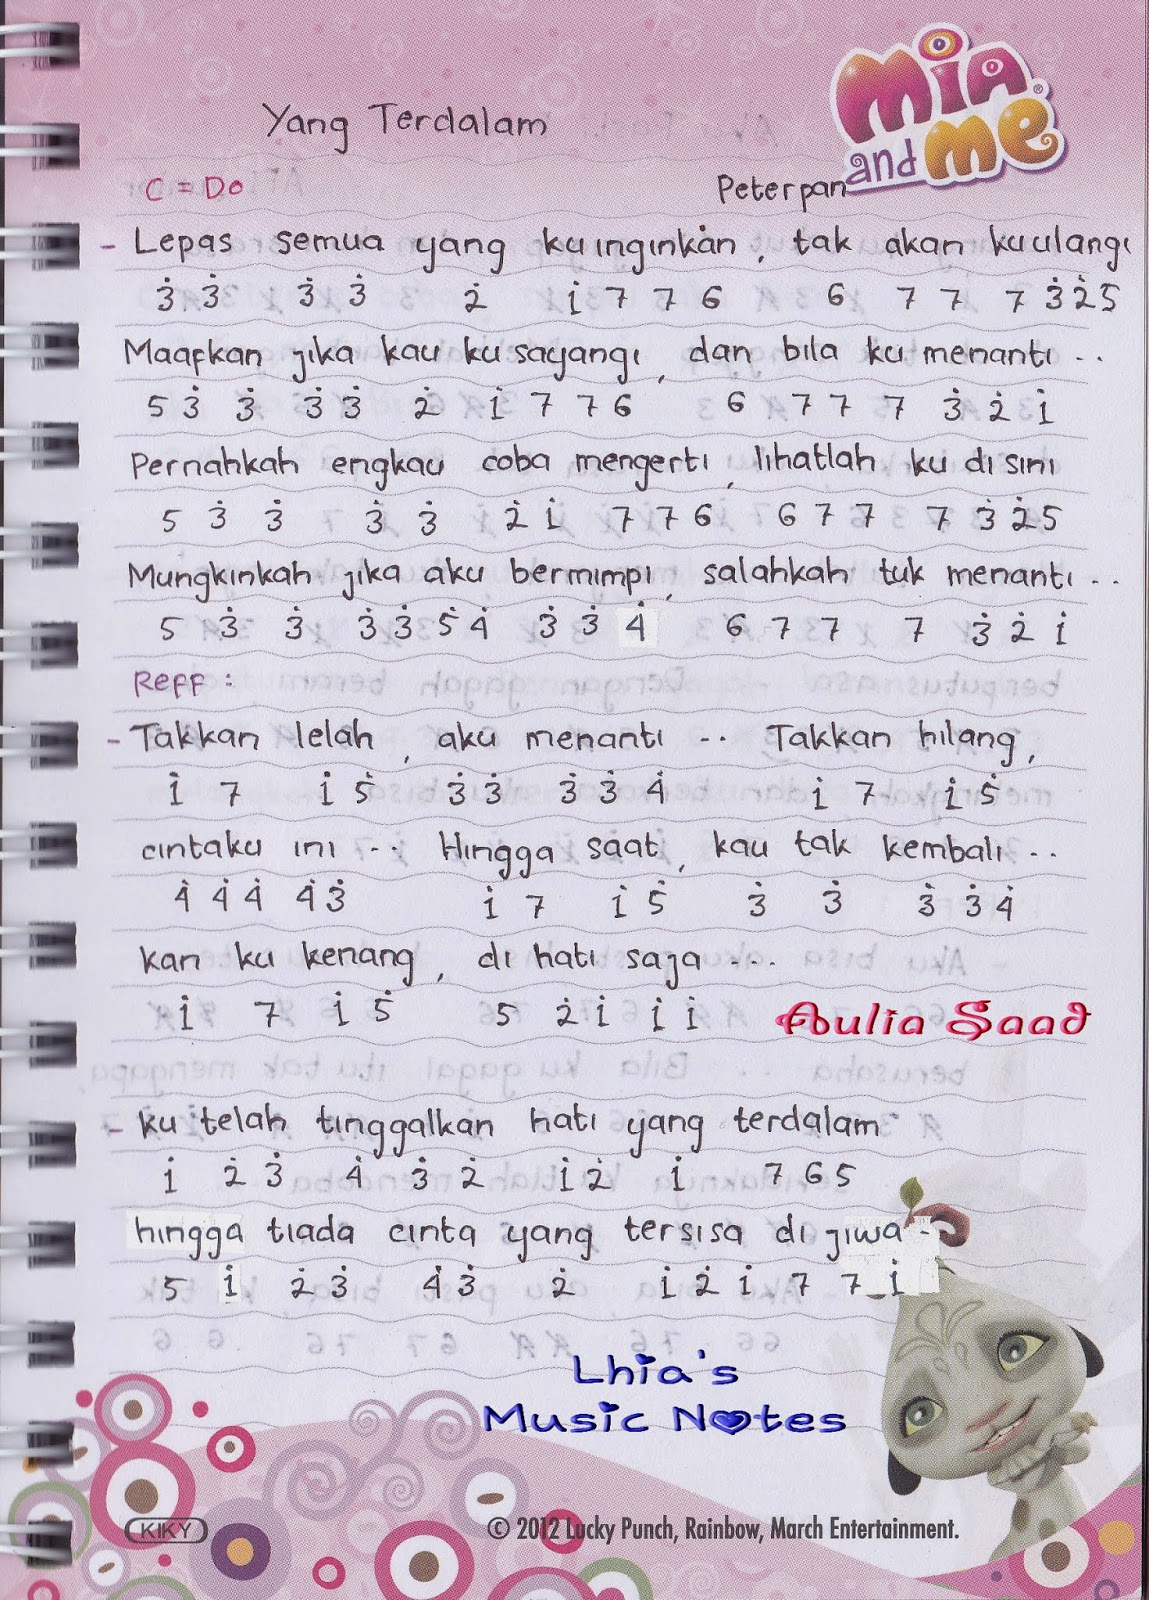 Mia
and me®
Yang Terdalam
C = Do
Peterpan
- Lepas semua yang kuinginkan, tak akan kuulangi
3̇ 3̇ 3̇ 3̇ 2̇ 1̇ 7 7 6 6 7 7 7 3̇ 2̇ 5
Maafkan jika kau kusayangi, dan bila ku menanti ..
5 3̇ 3̇ 3̇ 3̇ 2̇ 1̇ 7 7 6 6 7 7 7 3̇ 2̇ 1̇
Pernahkah engkau coba mengerti, lihatlah ku disini
5 3̇ 3̇ 3̇ 3̇ 2̇ 1̇ 7 7 6 6 7 7 7 3̇ 2̇ 5
Mungkinkah jika aku bermimpi, salahkah tuk menanti ..
5 3̇ 3̇ 3̇ 3̇ 5̇ 4̇ 3̇ 3̇ 4̇ 6 7 7 7 3̇ 2̇ 1̇
Reff :
- Takkan lelah, aku menanti .. Takkan hilang,
1̇ 7 1̇ 5̇ 3̇ 3̇ 3̇ 3̇ 4̇ 1̇ 7 1̇ 5̇
cintaku ini .. Hingga saat, kau tak kembali ..
4̇ 4̇ 4̇ 4̇ 3̇ 1̇ 7 1̇ 5̇ 3̇ 3̇ 3̇ 3̇ 4̇
kan ku kenang, di hati saja ...
1̇ 7 1̇ 5̇ 5 2̇ 1̇ 1̇ 1̇
Aulia Saad
- ku telah tinggalkan hati yang terdalam
1̇ 2̇ 3̇ 4̇ 3̇ 2̇ 1̇ 2̇ 1̇ 7 6 5
hingga tiada cinta yang tersisa di jiwa -
5 1̇ 2̇ 3̇ 4̇ 3̇ 2̇ 1̇ 2̇ 1̇ 7 7 1̇
Lhia's
Music Notes
KIKY
© 2012 Lucky Punch, Rainbow, March Entertainment.